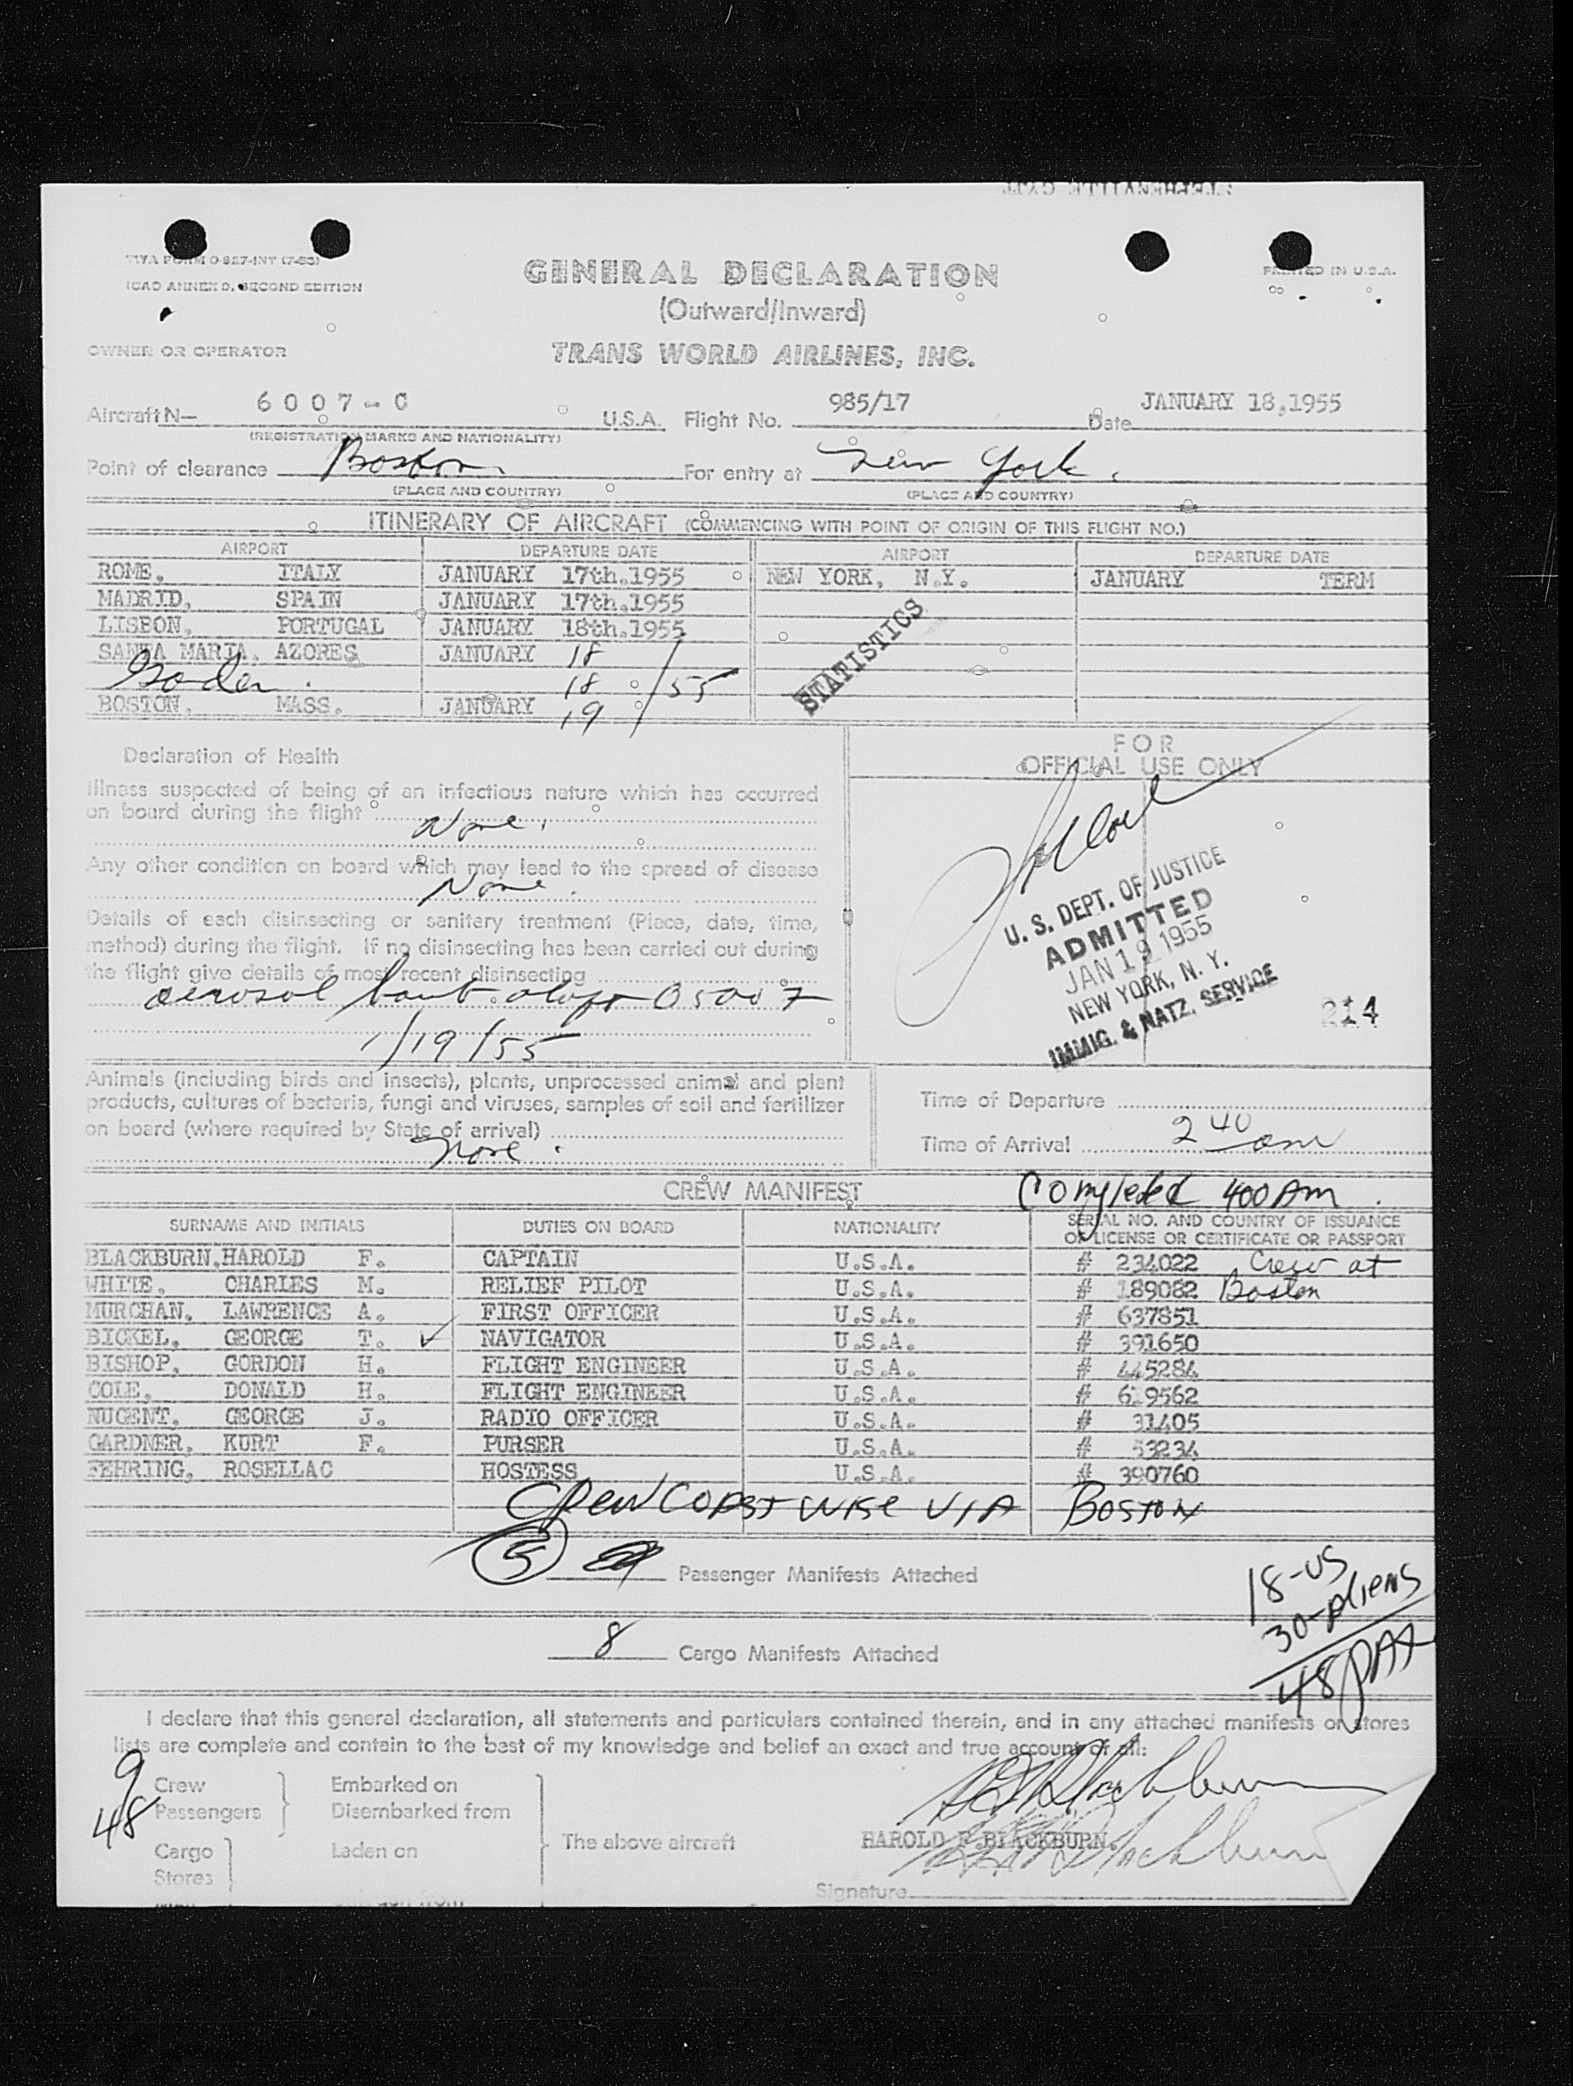 TWA FORM O-827-INT (7-53)
ICAO ANNEX 9, SECOND EDITION
PRINTED IN U.S.A.
GENERAL DECLARATION
(Outward/Inward)
OWNER OR OPERATOR TRANS WORLD AIRLINES, INC.
Aircraft N— 6007-C U.S.A. Flight No. 985/17 Date JANUARY 18,1955
(REGISTRATION MARKS AND NATIONALITY)
Point of clearance Boston For entry at New York.
(PLACE AND COUNTRY) (PLACE AND COUNTRY)
ITINERARY OF AIRCRAFT (COMMENCING WITH POINT OF ORIGIN OF THIS FLIGHT NO.)
AIRPORT DEPARTURE DATE AIRPORT DEPARTURE DATE
ROME, ITALY JANUARY 17th.1955 NEW YORK, N.Y. JANUARY TERM
MADRID, SPAIN JANUARY 17th.1955
LISBON, PORTUGAL JANUARY 18th.1955
SANTA MARIA, AZORES JANUARY 18
18 /55
BOSTON, MASS. JANUARY 19
STATISTICS
Declaration of Health
Illness suspected of being of an infectious nature which has occurred
on board during the flight
None.
Any other condition on board which may lead to the spread of disease
None.
Details of each disinsecting or sanitary treatment (Place, date, time,
method) during the flight. If no disinsecting has been carried out during
the flight give details of most recent disinsecting
aerosol bomb 0500 Z
1/19/55
FOR
OFFICIAL USE ONLY
U. S. DEPT. OF JUSTICE
ADMITTED
JAN 19 1955
NEW YORK, N. Y.
IMMIG. & NATZ. SERVICE
214
Animals (including birds and insects), plants, unprocessed animal and plant
products, cultures of bacteria, fungi and viruses, samples of soil and fertilizer
on board (where required by State of arrival)
None.
Time of Departure
Time of Arrival 2 40 am
CREW MANIFEST Completed 400 Am.
SURNAME AND INITIALS DUTIES ON BOARD NATIONALITY SERIAL NO. AND COUNTRY OF ISSUANCE
OF LICENSE OR CERTIFICATE OR PASSPORT
BLACKBURN,HAROLD F. CAPTAIN U.S.A. # 234022 Crew at
WHITE, CHARLES M. RELIEF PILOT U.S.A. # 189082 Boston
MURCHAN, LAWRENCE A. FIRST OFFICER U.S.A. # 637851
BICKEL, GEORGE T. ✓ NAVIGATOR U.S.A. # 391650
BISHOP, GORDON H. FLIGHT ENGINEER U.S.A. # 445284
COLE, DONALD H. FLIGHT ENGINEER U.S.A. # 619562
NUGENT, GEORGE J. RADIO OFFICER U.S.A. # 31405
GARDNER, KURT F. PURSER U.S.A. # 53234
FEHRING, ROSELLAC HOSTESS U.S.A. # 390760
CREW COASTWISE VIA BOSTON
5 Passenger Manifests Attached
18-US
30-Aliens
48 PAX
8 Cargo Manifests Attached
I declare that this general declaration, all statements and particulars contained therein, and in any attached manifests or stores
lists are complete and contain to the best of my knowledge and belief an exact and true account of all:
9 Crew Embarked on
48 Passengers Disembarked from
The above aircraft
Cargo Laden on
Stores
HF Blackburn
HAROLD F.BLACKBURN.
Signature